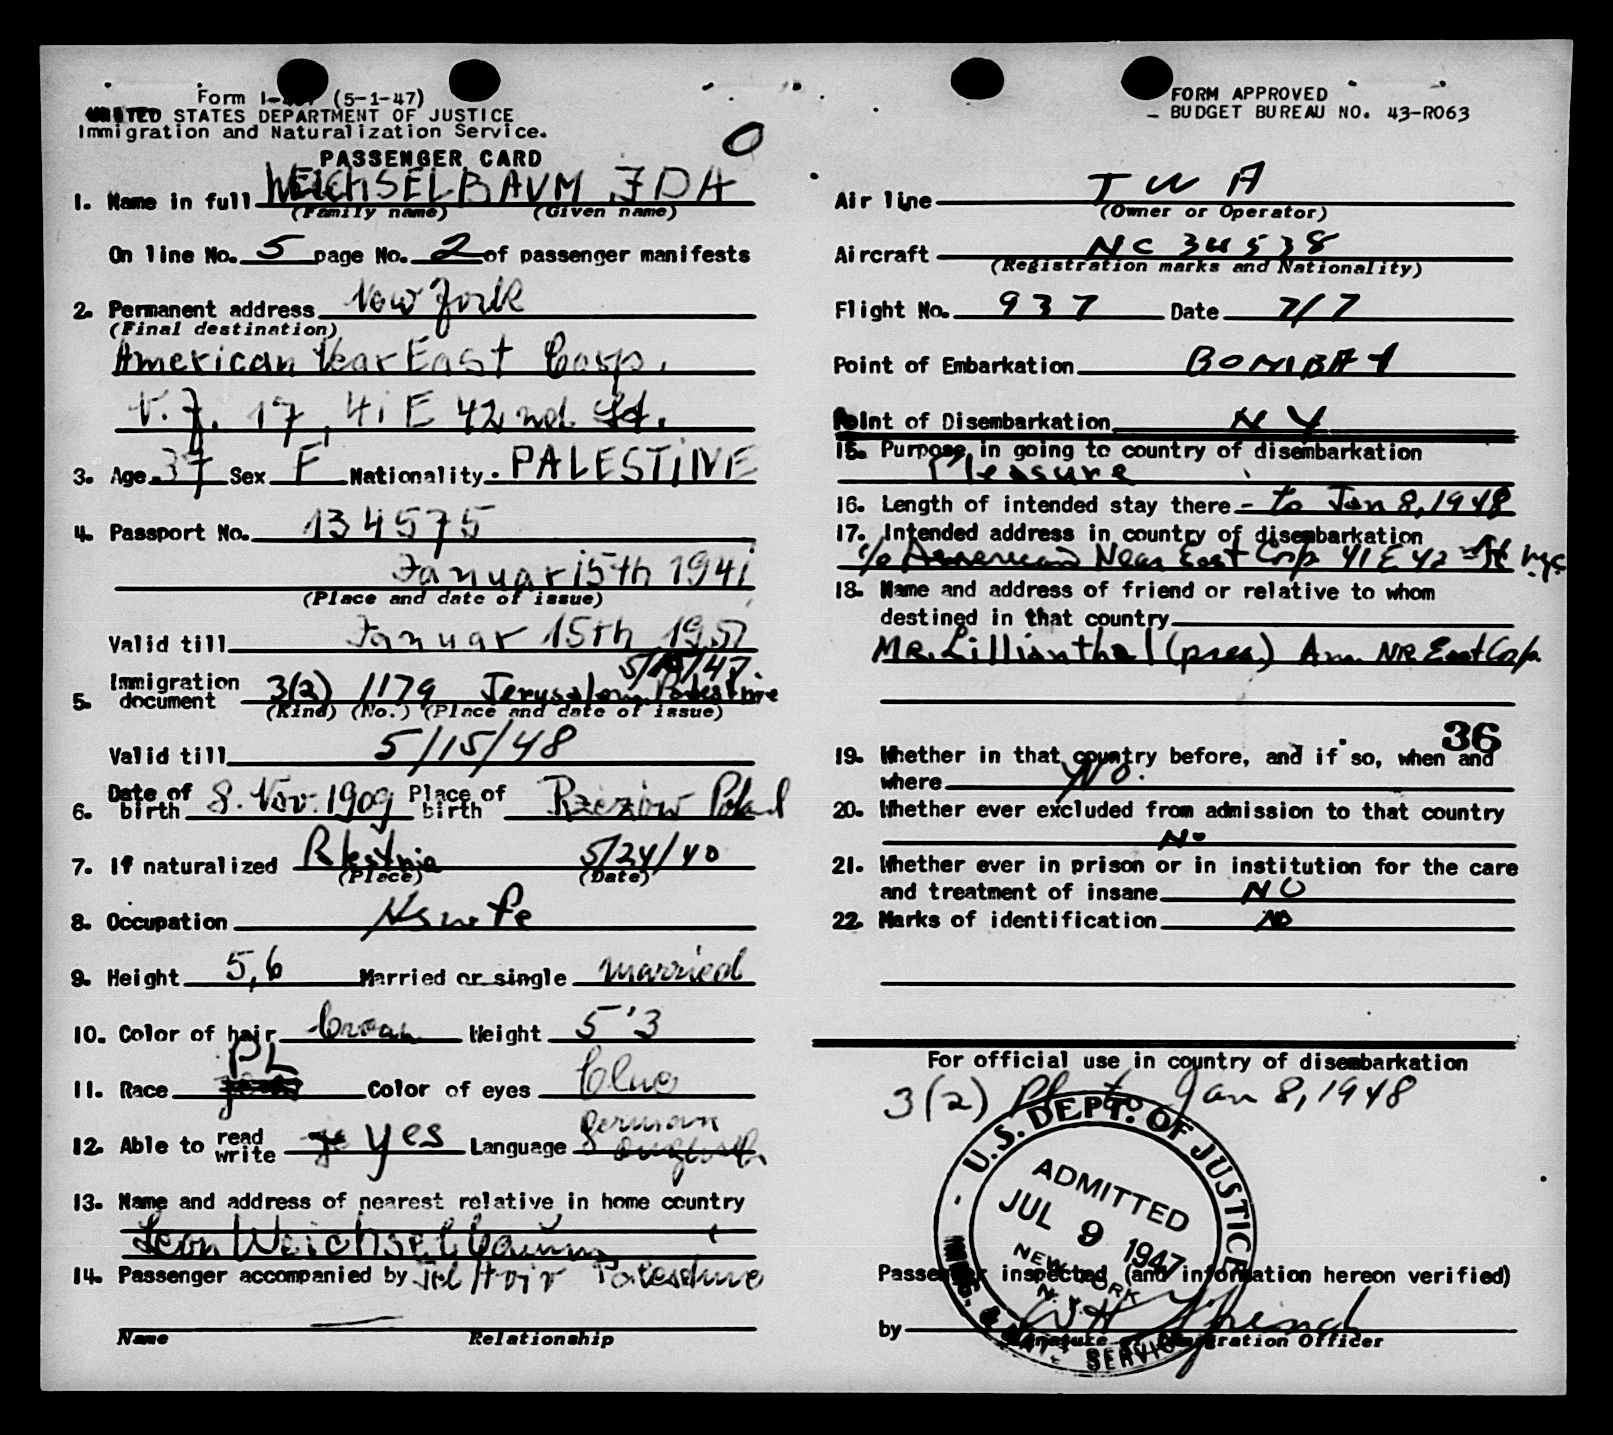 Form I- (5-1-47)
UNITED STATES DEPARTMENT OF JUSTICE
Immigration and Naturalization Service.
PASSENGER CARD
0
1. Name in full WEICHSELBAUM IDA
(Family name) (Given name)
On line No. 5 page No. 2 of passenger manifests
2. Permanent address New York
(Final destination)
American Near East Corp.
N.Y. 17, 41 E 42nd St.
3. Age 37 Sex F Nationality. PALESTINE
4. Passport No. 134575
Januar 15th 1941
(Place and date of issue)
Valid till Januar 15th 1951
5/15/47
5. Immigration document 3(2) 1179 Jerusalem Palestine
(Kind) (No.) (Place and date of issue)
Valid till 5/15/48
6. Date of birth 8. Nov. 1909 Place of birth Rzeszow Poland
7. If naturalized 5/24/40
(Place) (Date)
8. Occupation Hswfe
9. Height 5,6 Married or single married
10. Color of hair Height 5'3
11. Race PL Color of eyes blue
12. Able to read write yes Language German
13. Name and address of nearest relative in home country
Leon Weichselbaum
14. Passenger accompanied by Tel Aviv Palestine
Name Relationship
FORM APPROVED
BUDGET BUREAU NO. 43-R063
Air line TWA
(Owner or Operator)
Aircraft NC 34538
(Registration marks and Nationality)
Flight No. 937 Date 7/7
Point of Embarkation BOMBAY
Point of Disembarkation NY
15. Purpose in going to country of disembarkation
Pleasure
16. Length of intended stay there - to Jan 8, 1948
17. Intended address in country of disembarkation
c/o American Near East Corp 41 E 42 St nyc
18. Name and address of friend or relative to whom
destined in that country
Mr. Lillianthal (pres) Am NR East Corp.
36
19. Whether in that country before, and if so, when and
where No.
20. Whether ever excluded from admission to that country
No
21. Whether ever in prison or in institution for the care
and treatment of insane NO
22. Marks of identification NO
For official use in country of disembarkation
3(2) Jan 8, 1948
U.S. DEPT. OF JUSTICE
ADMITTED
JUL 9 1947
NEW YORK
N.Y.
IMMIG. & NAT. SERVICE
Passenger inspected (and information hereon verified)
by
Signature of Immigration Officer